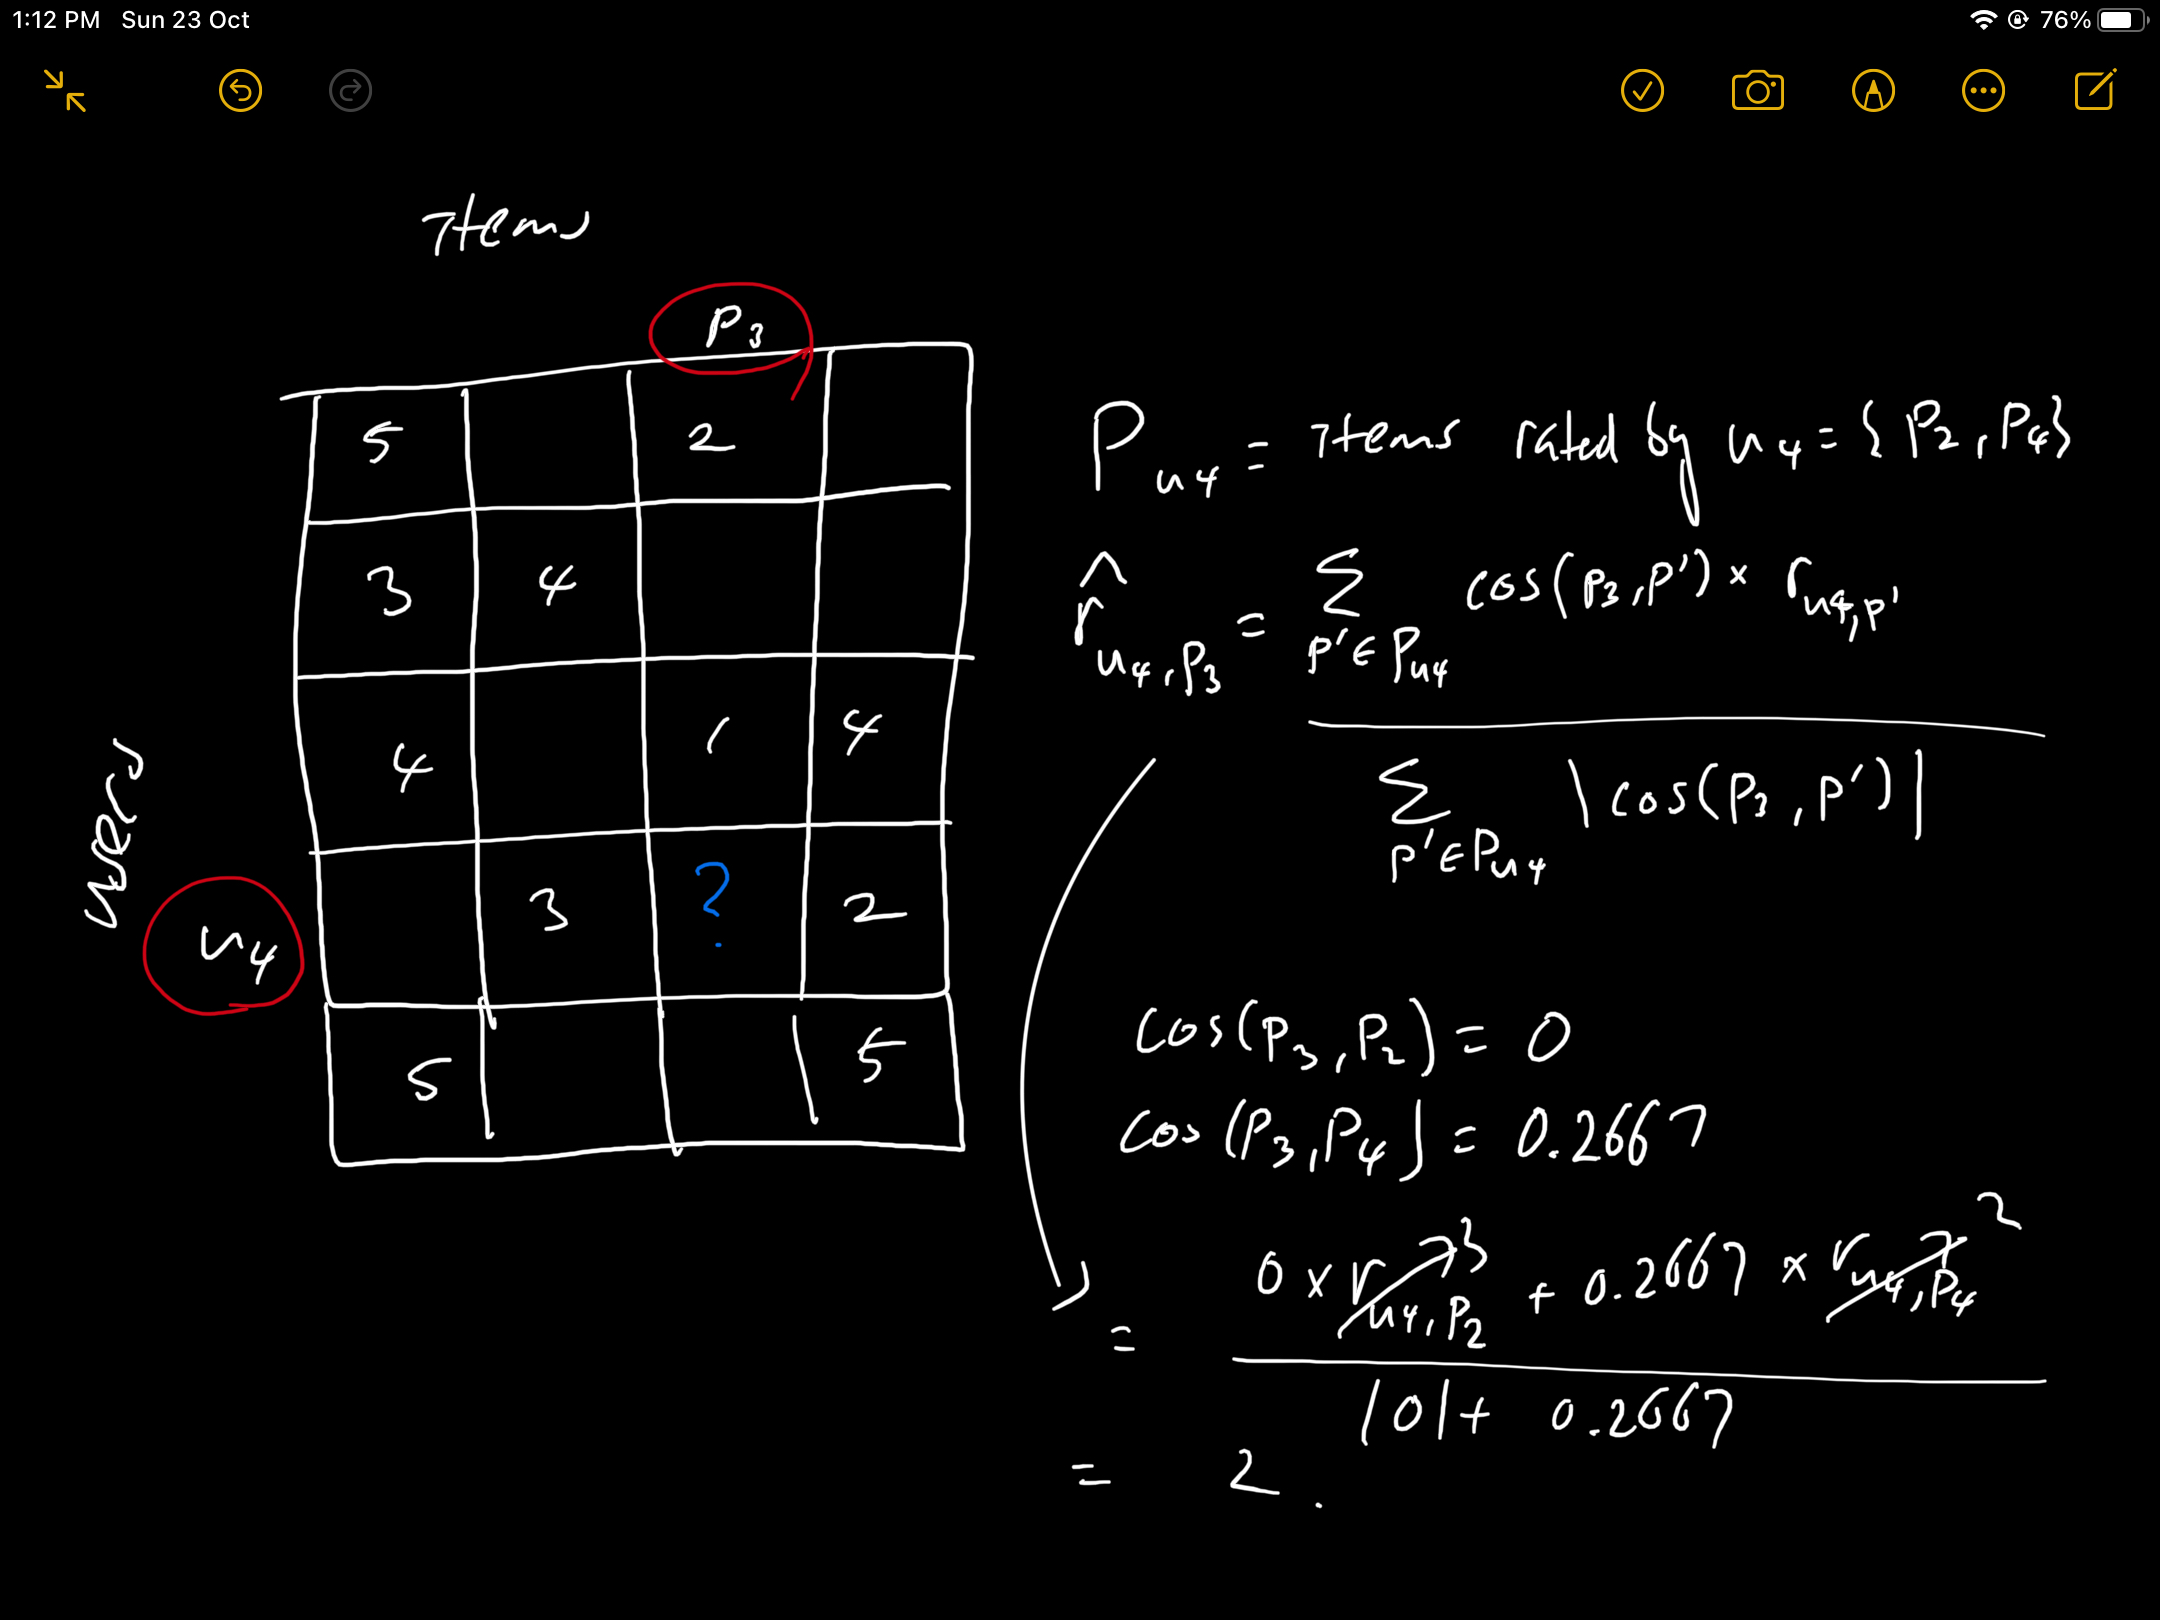 1:12 PM Sun 23 Oct 76%
Items
P₃
5 2
3 4
4 1 4
users
u₄ 3 ? 2
5 5
P_{u4} = Items rated by u₄ = { P₂, P₄ }
r̂_{u4,P3} = Σ_{P'∈P_{u4}} cos(P₃, P') × r_{u4,P'}
Σ_{P'∈P_{u4}} |cos(P₃, P')|
cos(P₃, P₂) = 0
cos(P₃, P₄) = 0.2667
= 0 × r_{u4,P2} 3 + 0.2667 × r_{u4,P4} 2
|0| + 0.2667
= 2.